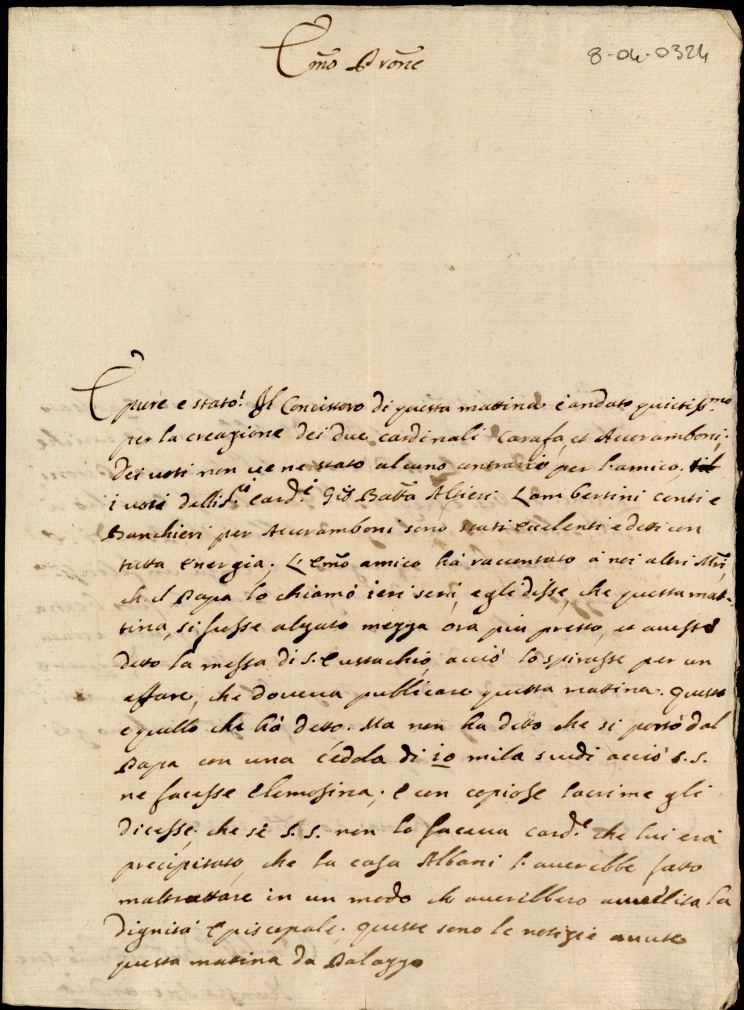 8-04-0324
Emo Prone
E pure e stato! Il Concistoro di questa mattina è andato quietissmo
per la creazione dei due cardinali Carafa, et Accoramboni;
dei voti non ve ne stato alcuno contrario per l'amico,
i voti delli Sri Cardi Gio Batta Altieri Lambertini Conti e
Banchieri per Accoramboni sono stati eccelenti e detti con
tutta energia. L'Emo amico ha raccontato a noi altri
ch il Papa lo chiamò ieri sera, e gli disse, che questa mat-
tina, si fusse alzato mezza ora più presto, et avesse
detto la messa di S. Eustachio, acciò lo spirasse per un
affare, che doveva publicare questa mattina. questo
e quello che hà detto. Ma non ha detto che si portò dal
Papa con una cedola di 10 mila scudi acciò S.S.
ne facesse elemosina; e con copiose lacrime gli
dicesse, che se S.S. non lo faceva carde che lui era
precipitato, che la casa Albani l'averebbe fatto
maltrattare in un modo ch averebbero avvilita la
dignità Episcopale. queste sono le notizie avute
questa matina da Palazzo